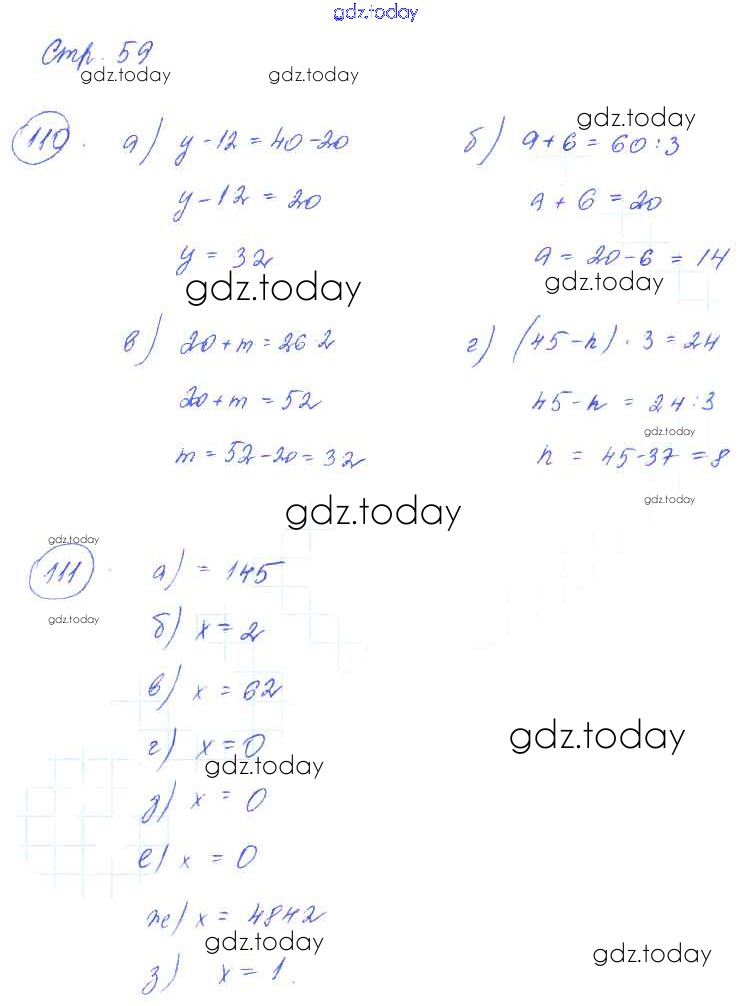 gdz.today
Стр. 59
gdz.today gdz.today
gdz.today
110. а) y - 12 = 40 - 20 б) a + 6 = 60 : 3
y - 12 = 20 a + 6 = 20
y = 32 a = 20 - 6 = 14
gdz.today gdz.today
в) 20 + m = 26 · 2 г) (45 - n) · 3 = 24
20 + m = 52 45 - n = 24 : 3
gdz.today
m = 52 - 20 = 32 n = 45 - 37 = 8
gdz.today
gdz.today
gdz.today
111. а) = 145
gdz.today
б) x = 2
в) x = 62
г) x = 0
gdz.today
gdz.today
д) x = 0
е) x = 0
ж) x = 4842
gdz.today
gdz.today
з) x = 1.